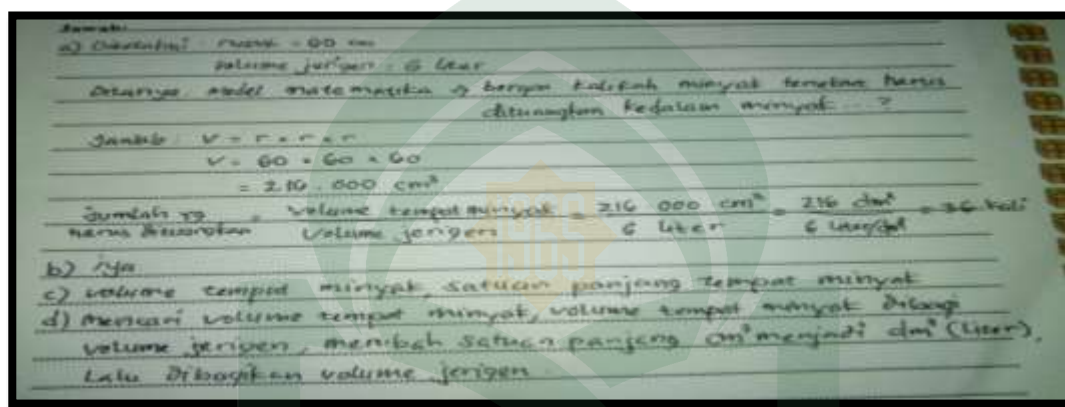 Jawab:
a) Diketahui : rusuk = 60 cm
volume jerigen : 6 liter
Ditanya model matematika & berapa kalikah minyak tersebut harus
dituangkan kedalam minyak ... ?
Jawab : V = r × r × r
V = 60 × 60 × 60
= 216.000 cm³
Jumlah yg harus = volume tempat minyak / volume jerigen = 216 000 cm³ / 6 liter = 216 dm³ / 6 liter/dm³ = 36 kali
b) iya
c) volume tempat minyak, satuan panjang tempat minyak
d) mencari volume tempat minyak, volume tempat minyak dibagi
volume jerigen, merubah satuan panjang cm³ menjadi dm³ (liter),
Lalu dibagikan volume jerigen